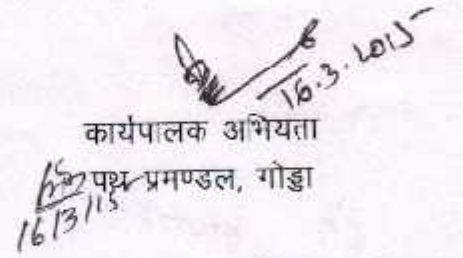 16.3.2015
कार्यपालक अभियता
पथ प्रमण्डल, गोड्डा
16/3/15